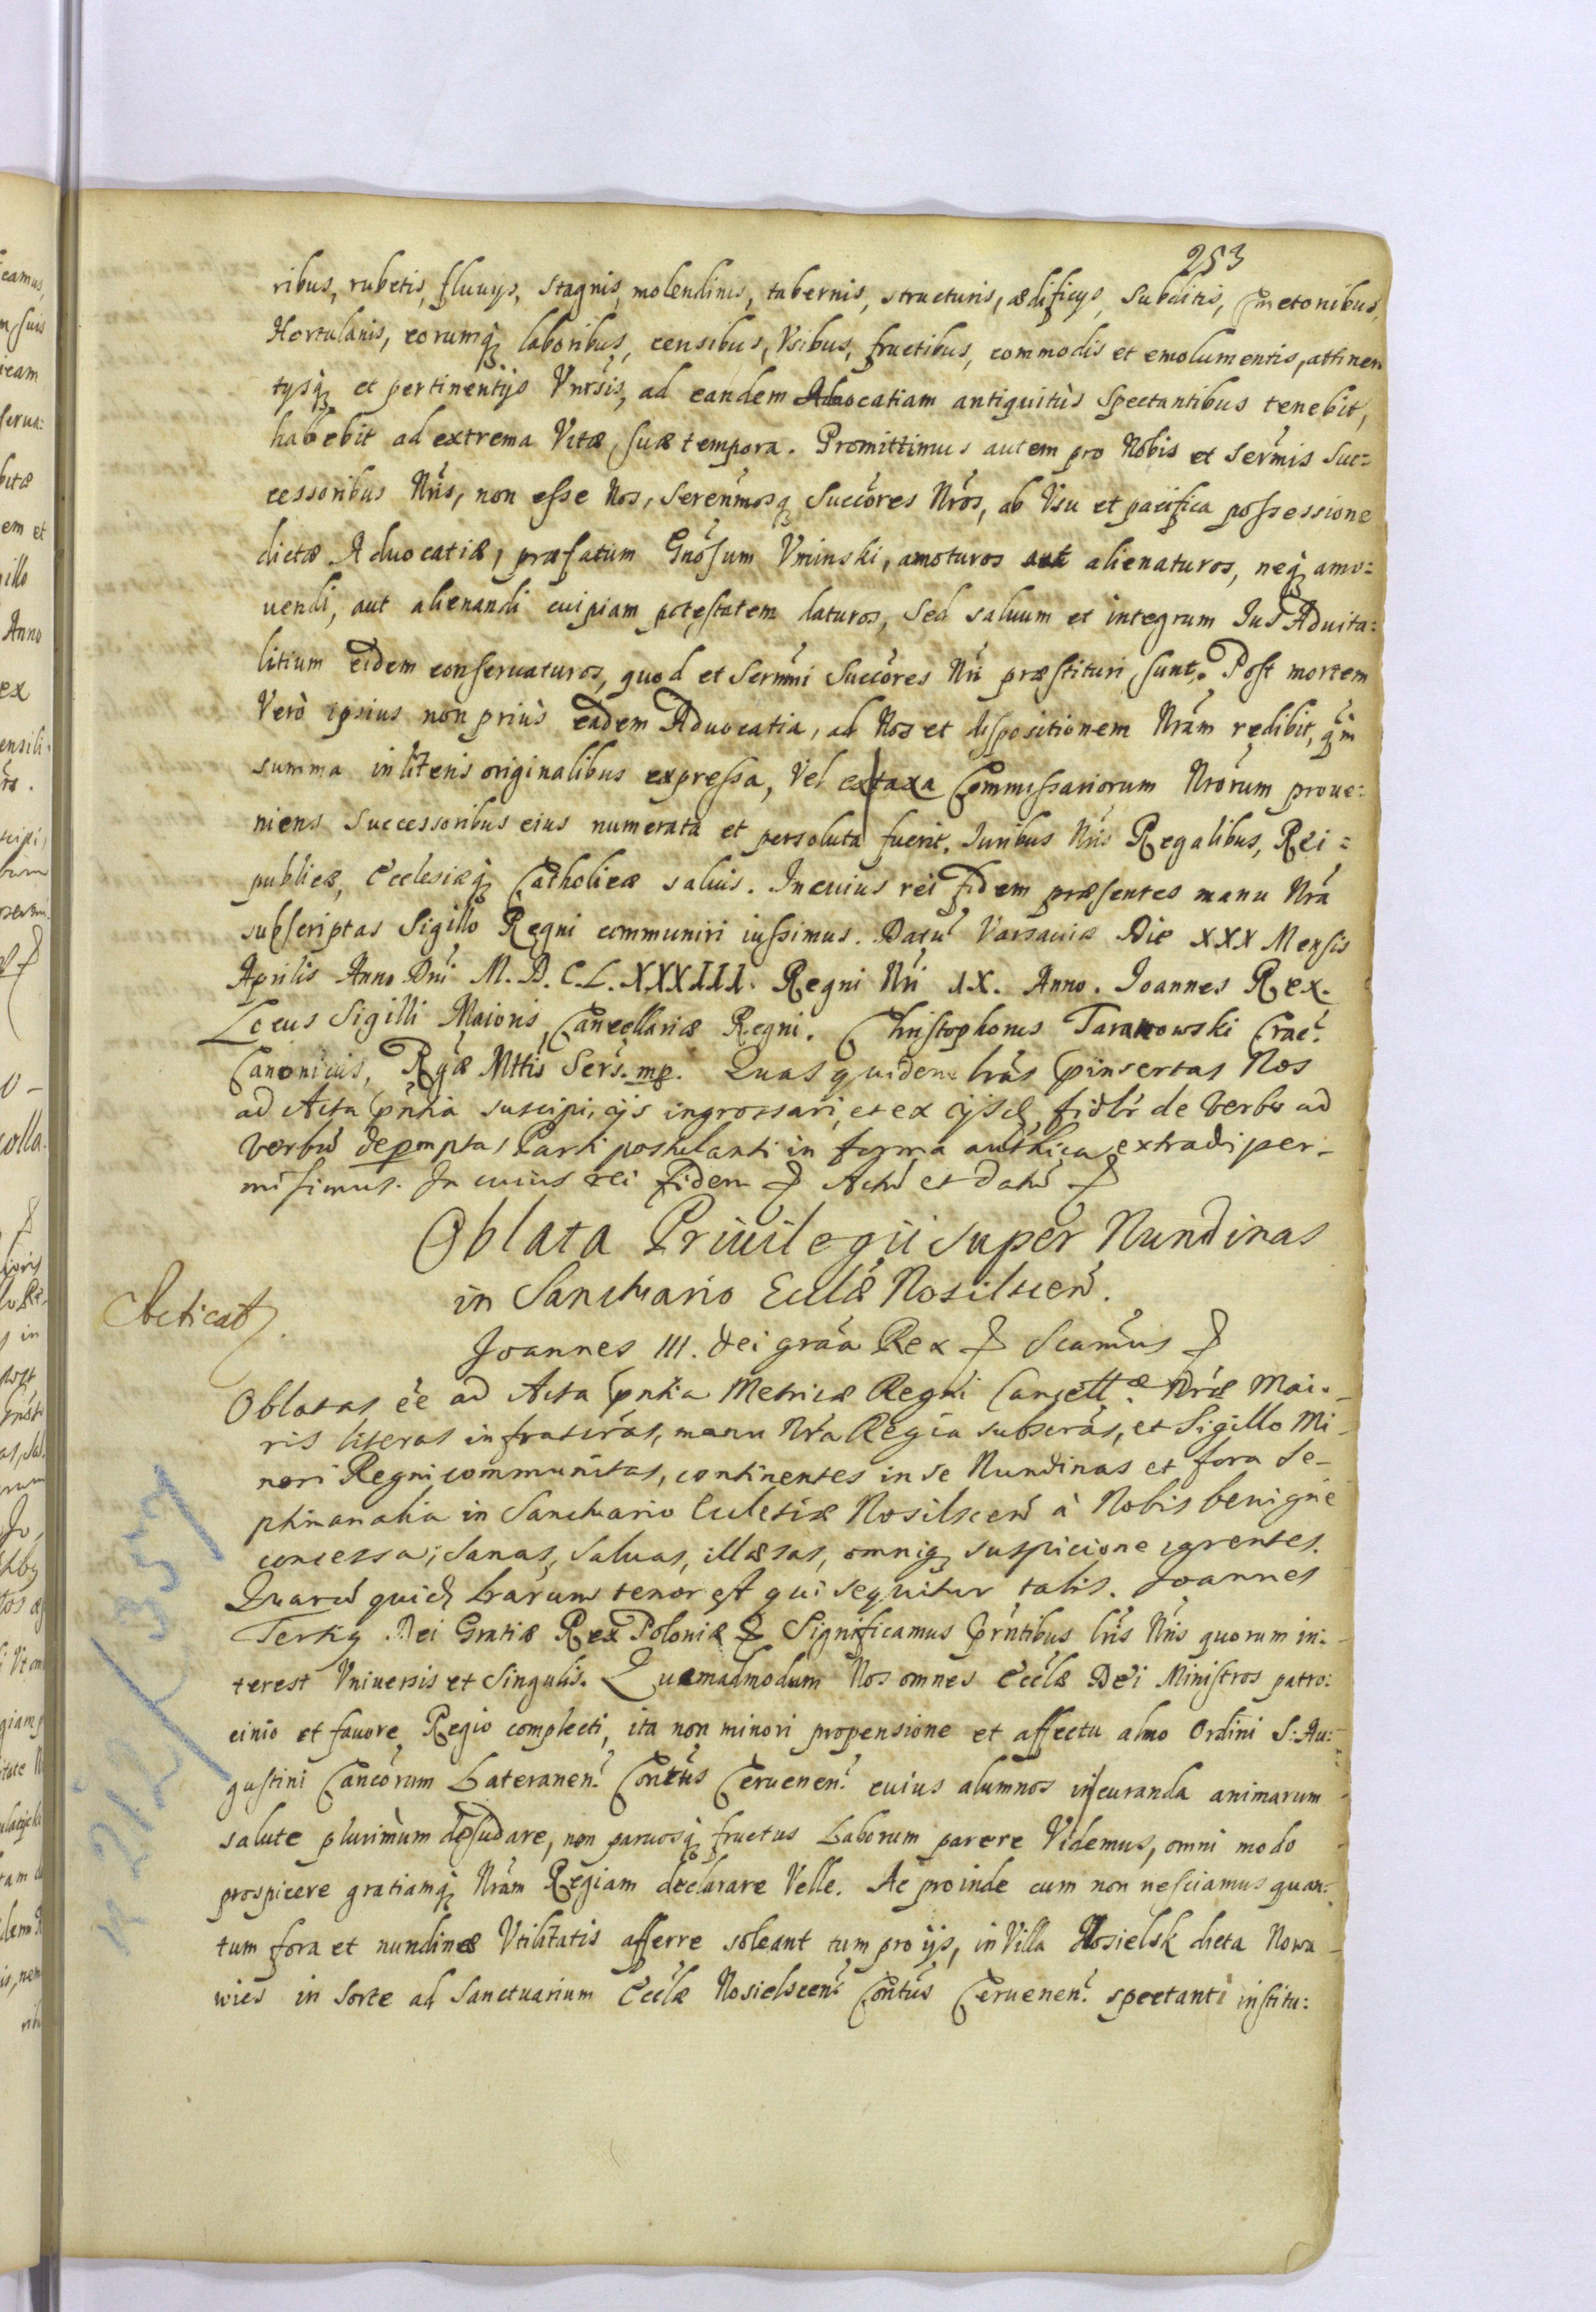 253
ribus, rubetis, fluuijs, stagnis, molendinis, tabernis, structuris, ædificijs, subditis, Cmetonibus,
Hortulanis, eorumq; laboribus, censibus, Vsibus, fructibus, commodis et emolumentis, attinen
tijsq; et pertinentijs Vnrsis, ad eandem Aduocatiam antiquitùs spectantibus tenebit,
habebit ad extrema Vitæ suæ tempora. Promittimus autem pro Nobis et Sermis Suc:
cessoribus Nris, non esse Nos, Serenmosq; Succores Nros, ab Vsu et pacifica possessione
dictæ Aduocatiæ, præfatum Gnosum Vminski, amoturos aut alienaturos, neq; amo:
uendi, aut alienandi cuipiam potestatem daturos, Sed saluum et integrum Ius Aduita:
litium eidem conseruaturos, quod et Sermi Succores Nri præstituri sunt. Post mortem
Verò ipsius non priùs eadem Aduocatia, ad Nos et dispositionem Nram redibit, qm
summa in literis originalibus expressa, Vel ex taxa Commissariorum Nrorum proue:
niens Successoribus eius numerata et persoluta fuerit. Iuribus Nris Regalibus, Rei=
publicæ, Ecclesiæq; Catholicæ saluis. In cuius rei fidem præsentes manu Nra
subscriptas Sigillo Regni communiri iussimus. Datu Varsauiæ Die XXX Mensis
Aprilis Anno Dni M.D.C.L.XXXIII. Regni Nri IX. Anno. Ioannes Rex.
Locus Sigilli Maioris Cancellariæ Regni. Christophorus Taranowski Crac.
Canonicus, Rgæ Mttis Sers. mp. Quas quidem lras pinsertas Nos
ad Acta pntia suscipi, ijs ingrossari, et ex ijsd fidlr de verbo ad
verbu depomptas Parti postulanti in forma authica extradi per-
misimus. In cuius rei fidem Actu et Datu
Oblata Priuilegii super Nundinas
in Sanctuario Ecclæ Nosilscen.
Acticat.
Joannes III. Dei graa Rex Scamus
Oblatas ee ad Acta pntia Metricæ Regni Cancellæ Nræ Maio-
ris literas infrascras, manu Nra Regia subscras, et Sigillo Mi-
nori Regni communitas, continentes in se Nundinas et fora se-
ptimanalia in Sanctuario Ecclesiæ Nosilscen à Nobis benigne
concessa; sanas, saluas, illæsas, omniq; suspicione carentes.
Quaru quid lrarum tenor est qui sequitur talis. Joannes
Tertiq Dei Gratiæ Rex Poloniæ Significamus Prntibus lris Nris quorum in:
terest Vniuersis et Singulis. Quemadmodum Nos omnes Ecclæ Dei Ministros patro:
cinio et fauore Regio complecti, ita non minori propensione et affectu almo Ordini S: Au:
gustini Cancorum Lateranen. Contus Ceruenen. cuius alumnos in curanda animarum
salute plurimùm desudare, non paruosq; fructus Laborum parere Videmus, omni modo
prospicere gratiamq; Nram Regiam declarare Velle. Ac proinde cum non nesciamus quan:
tum fora et nundinæ Vtilitatis afferre soleant tum pro ijs, in Villa Nosielsk dicta Nowa
wies in sorte ad Sanctuarium Ecclæ Nosielscen. Contus Ceruenen. spectanti institu: